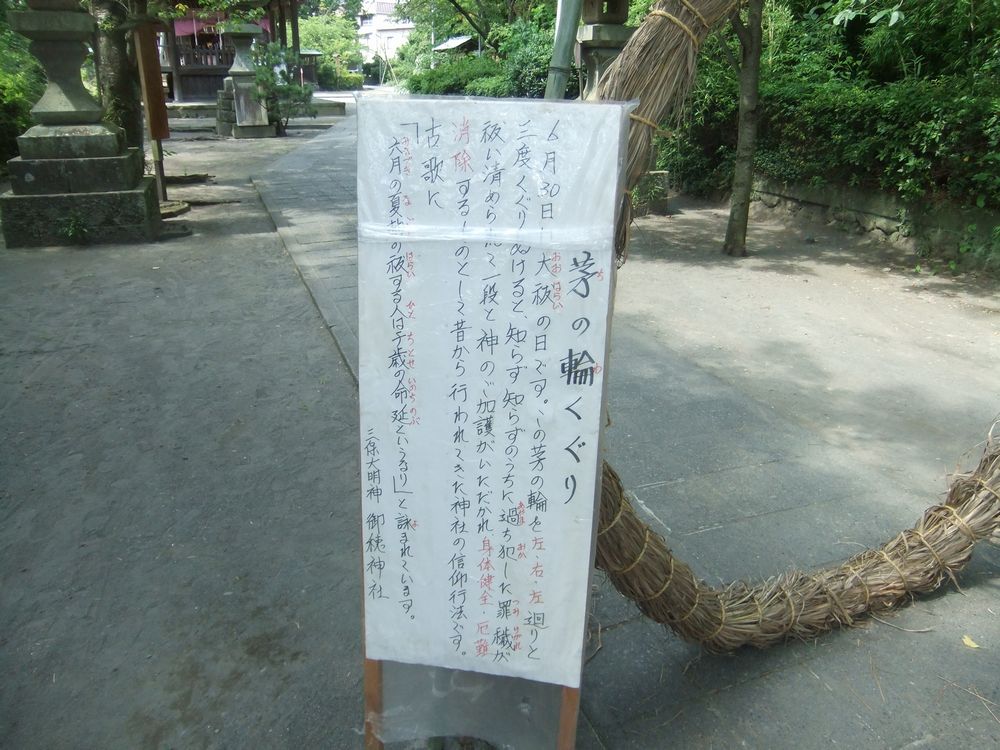 茅の輪くぐり
6月30日は大祓の日です。この茅の輪を左・右・左廻りと
三度くぐりぬけると、知らず知らずのうちに過ち犯した罪穢が
祓い清められて一段と神のご加護がいただかれ、身体健全・厄難
消除するものとして昔から行われてきた神社の信仰行法です。
古歌に
「六月の夏越の祓する人は千歳の命延というなり」と詠まれています。
三保大明神 御穂神社